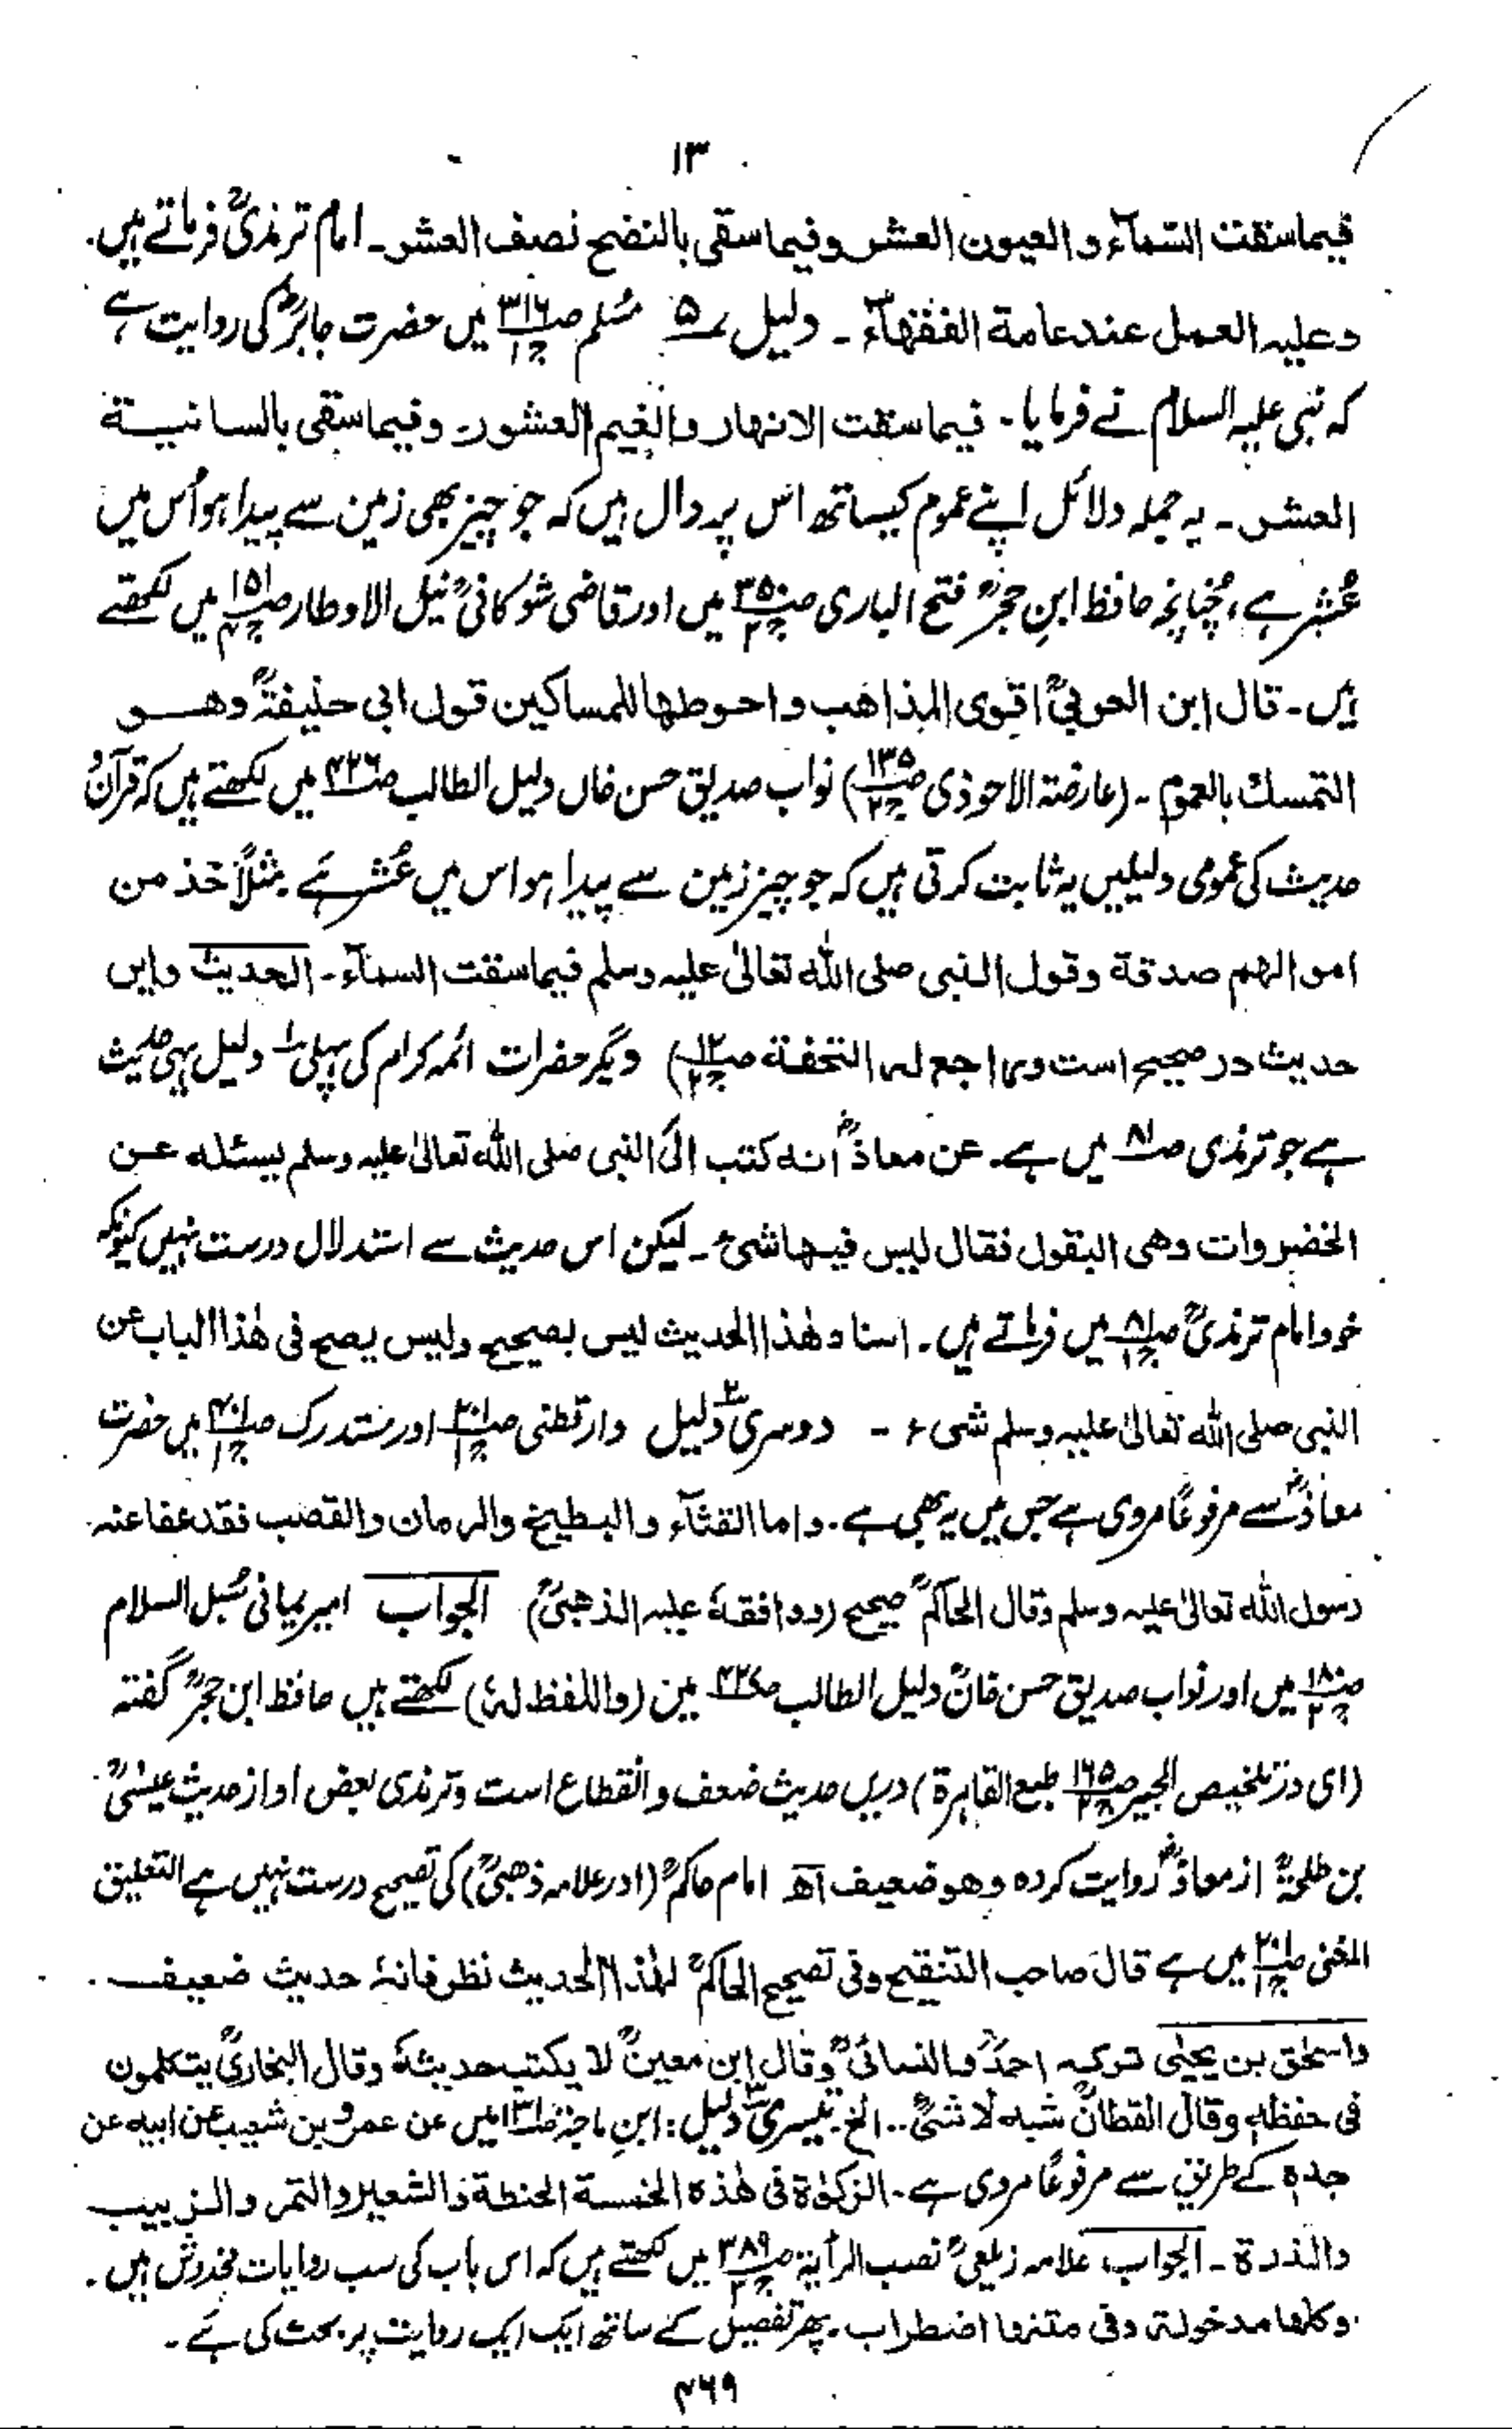 ۱۳
فیما سقت السّمآء و العیون العشر وفیما سقی بالنضح نصف العشر۔ امام ترمذیؒ فرماتے ہیں۔
وعلیہ العمل عند عامة الفقهآء ۔ دلیل ۵ مُسلم ص۳۱۶ ج۱ میں حضرت جابرؓ کی روایت ہے
کہ نبی علیہ السلام نے فرمایا۔ فیما سقت الانهار والغیم العشور۔ وفیما سقی بالسانیة
العشر۔ یہ جملہ دلائل اپنے عموم کیساتھ اس پر دال ہیں کہ جو چیز بھی زمین سے پیدا ہو اُس میں
عُشر ہے، چُنانچہ حافظ ابنِ حجرؒ فتح الباری ص۳۵۰ ج۳ میں اور قاضی شوکانیؒ نیل الاوطار ص۱۵۱ ج۴ میں لکھتے
ہیں۔ قال ابن العربیؒ اقوی المذاهب واحوطها للمساکین قول ابی حنیفةؒ وهو
التمسك بالعموم ۔ (عارضة الاحوذی ص۱۳۵ ج۳) نواب صدیق حسن خاں دلیل الطالب ص۴۲۶ میں لکھتے ہیں کہ قرآن و
حدیث کی عمومی دلیلیں یہ ثابت کرتی ہیں کہ جو چیز زمین سے پیدا ہو اس میں عُشر ہَے مثلاً خذ من
اموالهم صدقة وقول النبی صلی اللہ تعالیٰ علیہ وسلم فیما سقت السمآء۔ الحدیث وایں
حدیث در صحیح است وراجع لہ التحفة ص۱۲ ج۲) دیگر حضرات ائمہ کرام کی پہلی ۱ دلیل یہی حدیث
ہے جو ترمذی ص۸۱ میں ہے۔ عن معاذؓ أنه کتب الی النبی صلی اللہ تعالیٰ علیہ وسلم یسئلہ عن
الخضروات وهی البقول فقال لیس فیها شیء ۔ لیکن اس حدیث سے استدلال درست نہیں کیونکہ
خود امام ترمذیؒ ص۸۱ ج۱ میں فرماتے ہیں۔ اسناد هٰذا الحدیث لیس بصحیح ولیس یصح فی هٰذا الباب عن
النبی صلی اللہ تعالیٰ علیہ وسلم شیء ۔ دوسری ۲ دلیل دارقطنی ص۲۰۱ ج۱ اور مستدرک ص۴۰۱ ج۱ میں حضرت
معاذؓ سے مرفوعًا مروی ہے جس میں یہ بھی ہے۔ واما القثآء والبطیخ والرمان والقصب فقد عفا عنہ
رسول اللہ تعالیٰ علیہ وسلم وقال الحاکمؒ صحیح (ووافقهٗ علیہ الذهبیؒ) الجواب امیر یمانی سُبل السلام
ص۱۸۰ ج۲ میں اور نواب صدیق حسن خانؒ دلیل الطالب ص۴۲۷ مین (واللفظ لهٗ) لکھتے ہیں حافظ ابن حجرؒ گفتہ
(ای در تلخیص الحبیر ص۱۶۵ ج۲ طبع القاہرة) دریں حدیث ضعف وانقطاع است وترمذی بعض او از حدیث عیسٰیؒ
بن طلحہؒ از معاذؓ روایت کردہ وهو ضعیف اھ امام حاکمؒ (اور علامہ ذهبیؒ) کی تصحیح درست نہیں ہے التعلیق
المغنی ص۲۰۱ ج۱ میں ہے قال صاحب التنقیح وفی تصحیح الحاکمؒ لهٰذا الحدیث نظر فانهٗ حدیث ضعیف
واسحٰق بن یحیٰی ترکہ احمدؒ والنسائیؒ وقال ابن معینؒ لا یکتب حدیثهٗ وقال البخاریؒ یتکلمون
فی حفظهٖ وقال القطانؒ شبه لا شیؑ .. الخ تیسری ۳ دلیل: ابنِ ماجہ ص۱۳۱ میں عن عمرو بن شعیب عن ابیه عن
جدہٖ کے طریق سے مرفوعًا مروی ہے۔ الزکوٰة فی هٰذہ الخمسة الحنطة والشعیر والتمر والزبیب
والذرة ۔ الجواب علامہ زیلعیؒ نصب الرأیة ص۳۸۹ ج۲ میں لکھتے ہیں کہ اس باب کی سب روایات مخدوش ہیں۔
وکلها مدخولة وفی متنها اضطراب ۔ پھر تفصیل کے ساتھ ایک ایک روایت پر بحث کی ہَے ۔
۴۶۹